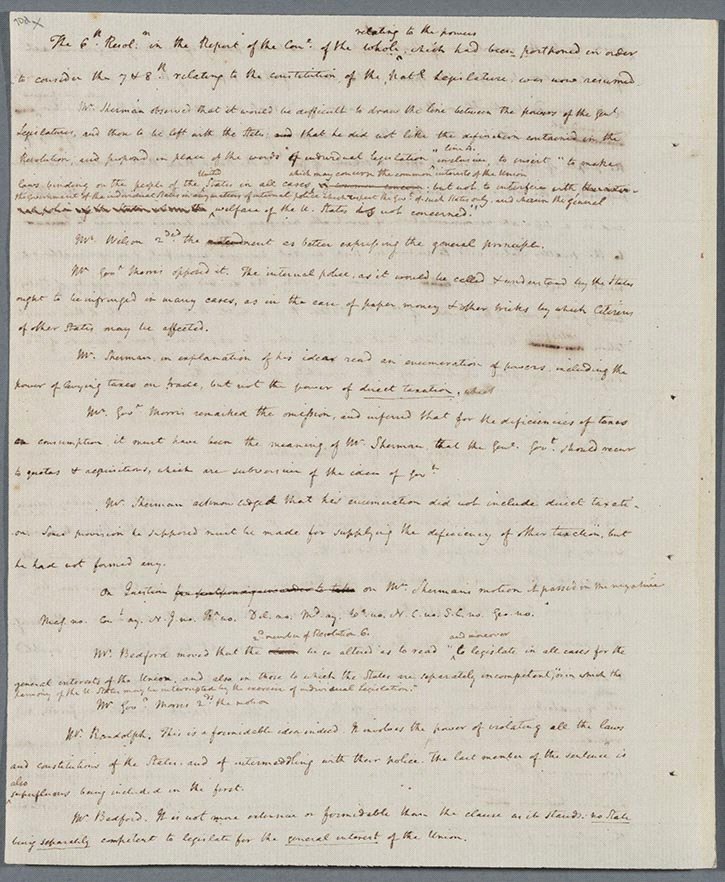 relating to the powers
The 6th. Resol:n in the Report of the Come. of the whole, which had been postponed in order
to consider the 7 & 8th. relating to the constitution of the Natl. Legislature, was now resumed
Mr. Sherman observed that it would be difficult to draw the line between the powers of the Genl.
Legislatures, and those to be left with the States; and that he did not like the definition contained in the
Resolution, and proposed in place of the words "of individual legislation" inclusive, to insert "to make
United which may concern the common interests of the Union
laws binding on the people of the States in all cases; but not to interfere with
the Government of the individual States in any matters of internal police which respect the Govt. of such States only, and wherein the general
welfare of the U. States is not concerned."
Mr. Wilson 2ded. the amendment as better expressing the general principle.
Mr. Govr. Morris opposed it. The internal police, as it would be called & understood by the States
ought to be infringed in many cases, as in the case of paper money & other tricks by which Citizens
of other States may be affected.
Mr. Sherman, in explanation of his ideas read an enumeration of powers, including the
power of levying taxes on trade, but not the power of direct taxation.
Mr. Govr. Morris remarked the omission, and inferred that for the deficiencies of taxes
on consumption, it must have been the meaning of Mr. Sherman, that the Genl. Govt. should recur
to quotas & requisitions, which are subversive of the idea of Govt.
Mr. Sherman acknowledged that his enumeration did not include direct taxati-
on. Some provision he supposed must be made for supplying the deficiency of other taxation, but
he had not formed any.
On Question on Mr. Sherman's motion it passed in the negative
Mas. no. Cont. ay. N. J. no. Pa. no. Del. no. Md. ay. Va. no. N. C. no. S. C. no. Geo. no.
2d. member of Resolution 6. and moreover
Mr. Bedford moved that the be so altered as to read "to legislate in all cases for the
general interests of the Union, and also in those to which the States are separately incompetent, or in which the
harmony of the U. States may be interrupted by the exercise of individual Legislation."
Mr. Govr. Morris 2ds. the motion
Mr. Randolph. This is a formidable idea indeed. It involves the power of violating all the laws
and constitutions of the States, and of intermeddling with their police. The last member of the sentence is
also
superfluous, being included in the first.
Mr. Bedford. It is not more extensive or formidable than the clause as it stands: no State
being separately competent to legislate for the general interest of the Union.